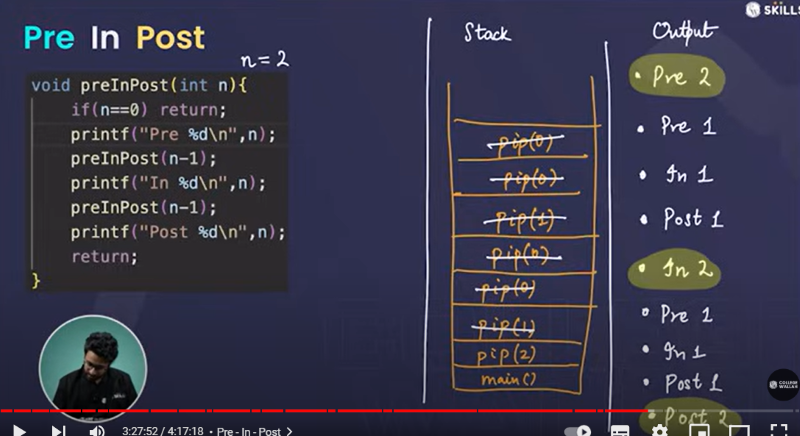 SKILLS
Pre In Post
n=2
void preInPost(int n){
if(n==0) return;
printf("Pre %d\n",n);
preInPost(n-1);
printf("In %d\n",n);
preInPost(n-1);
printf("Post %d\n",n);
return;
}
Stack
pip(0)
pip(0)
pip(1)
pip(0)
pip(0)
pip(1)
pip(2)
main()
Output
• Pre 2
• Pre 1
• In 1
• Post 1
• In 2
• Pre 1
• In 1
• Post 1
• Post 2
COLLEGE
WALLAH
3:27:52 / 4:17:18 • Pre - In - Post >